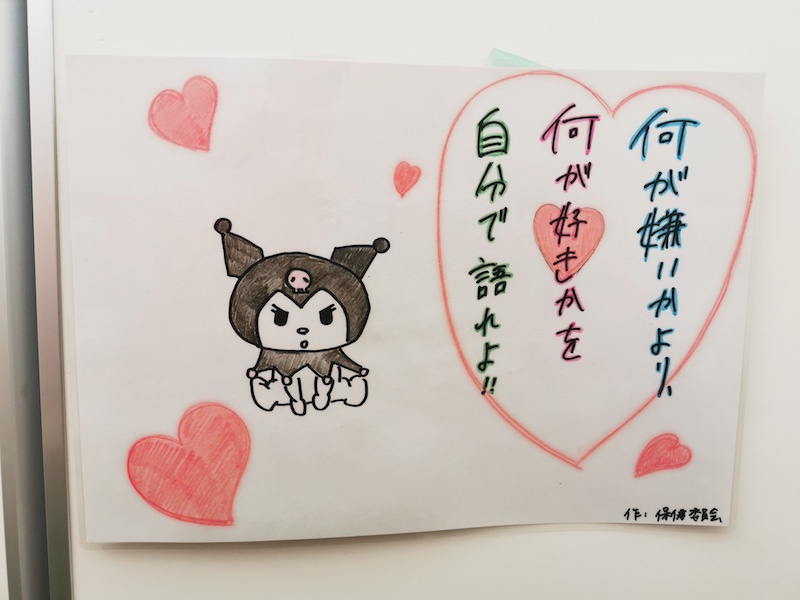 何が嫌いかより、
何が好きかを
自分で語れよ!!
作：保健委員会